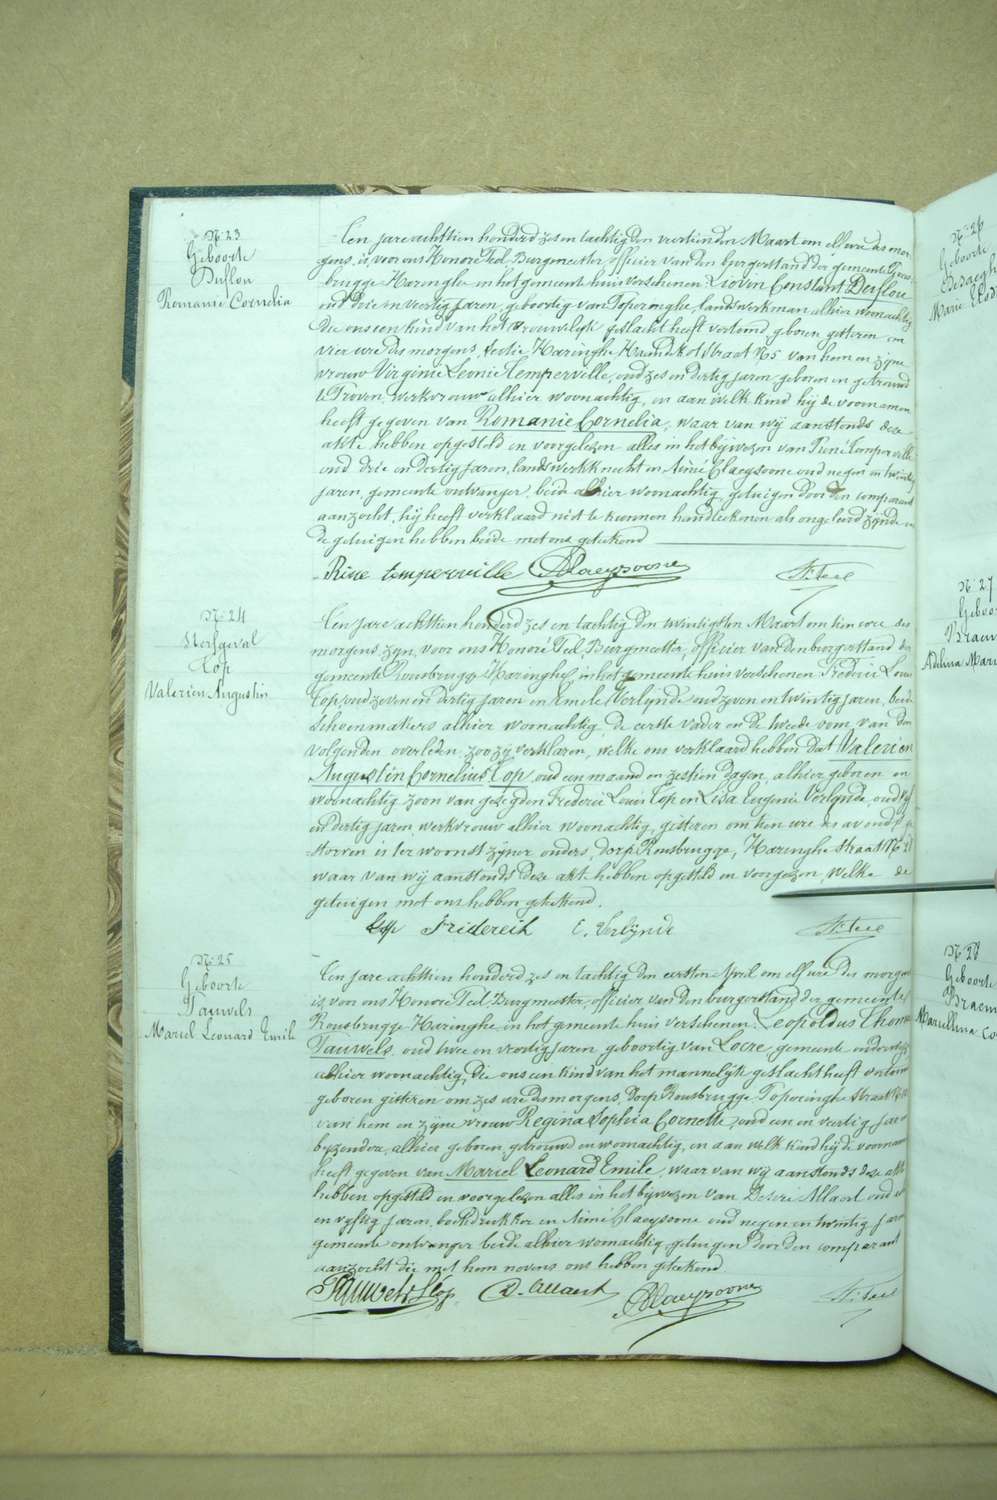 N: 23
Geboorte
Duflou
Romanie Cornelia
Een jare achttien honderd zes en tachtig den veertienden Maart om elf ure des mor-
gens, is voor ons Honoré Teel Burgmeester, officier van den burgerstand der gemeente Rous-
brugge Haringhe in het gemeente huis verschenen Lieven Constant Duflou
oud drie en veertig jaren, geboortig van Poperinghe, landswerkman alhier woonachtig
Die ons een kind van het vrouwelijk geslacht heeft vertoond geboren gisteren om
vier ure des morgens, sectie Haringhe straat N: 65 van hem en zijne
vrouw Virginie Leonie Temperville, oud zes en dertig jaren geboren en getrouwd
te Proven, werkvrouw alhier woonachtig, en aan welk kind hij de voornamen
heeft gegeven van Romanie Cornelia, waar van wij aanstonds deze
akte hebben opgesteld en voorgelezen alles in het bijwezen van René Temperville
oud drie en dertig jaren, landswerkknecht en Aimé Claeysoone oud negen en twintig
jaren, gemeente ontvanger, beide alhier woonachtig getuigen door den comparant
aanzocht, hij heeft verklaard niet te kunnen handteekenen als ongeleerd zijnde en
de getuigen hebben beide met ons geteekend
Rine temperville AClaeysoone H. Teel
N: 24
Sterfgeval
Top
Valerien Augustin
Een jare achttien honderd zes en tachtig den twintigsten Maart om tien ure des
morgens zijn, voor ons Honoré Teel, Burgmeester, officier van den burgerstand der
gemeente Rousbrugge Haringhe, in het gemeente huis verschenen Frederic Louis
Top oud zeven en dertig jaren en Emile Verlynde oud zeven en twintig jaren, beide
schoenmakers alhier woonachtig, de eerste vader en de tweede oom, van den
volgenden overleden, zoo zij verklaren, welke ons verklaard hebben dat Valerien
Augustin Cornelius Top, oud een maand en zestien dagen, alhier geboren en
woonachtig zoon van gezegden Frederic Louis Top en Lisa Eugenie Verlynde, oud vyf
en dertig jaren, werkvrouw alhier woonachtig, gisteren om tien ure des avonds ge-
storven is ter woonst zijner ouders, dorp Rousbrugge, Haringhe straat N: 28
waar van wij aanstonds deze akt hebben opgesteld en voorgelezen, welke de
getuigen met ons hebben geteekend.
top Fridereik E. Verlynde H. Teel
N: 25
Geboorte
Pauwels
Mariel Leonard Emile
Een jare achttien honderd zes en tachtig den eersten April om elf ure des morgens
is, voor ons Honoré Teel Burgmeester, officier van den burgerstand der gemeente
Rousbrugge Haringhe in het gemeente huis verschenen Leopoldus Thomas
Pauwels, oud twee en veertig jaren geboortig van Locre, gemeente onderwijzer
alhier woonachtig, Die ons een kind van het mannelijk geslacht heeft vertoond
geboren gisteren om zes ure des morgens, Dorp Rousbrugge Poperinghe straat
van hem en zijne vrouw Regina Sophia Cornette, oud een en veertig jaren
byzondere, alhier geboren, getrouwd en woonachtig, en aan welk kind hij de voornamen
heeft gegeven van Mariel Leonard Emile, waar van wij aanstonds deze akte
hebben opgesteld en voorgelezen alles in het bijwezen van Desire Allaert oud
en vyftig jaren, boekdrukker en Aimé Claeysoone oud negen en twintig jaren
gemeente ontvanger beide alhier woonachtig getuigen door den comparant
aanzocht die met hem nevens ons hebben geteekend.
Pauwels Leop. D. Allaert AClaeysoone H. Teel
N: 26
Geboorte
Marie Elodie
N: 27
Adelina Mari
N: 28
Geboorte
Braem
Marcellina Co